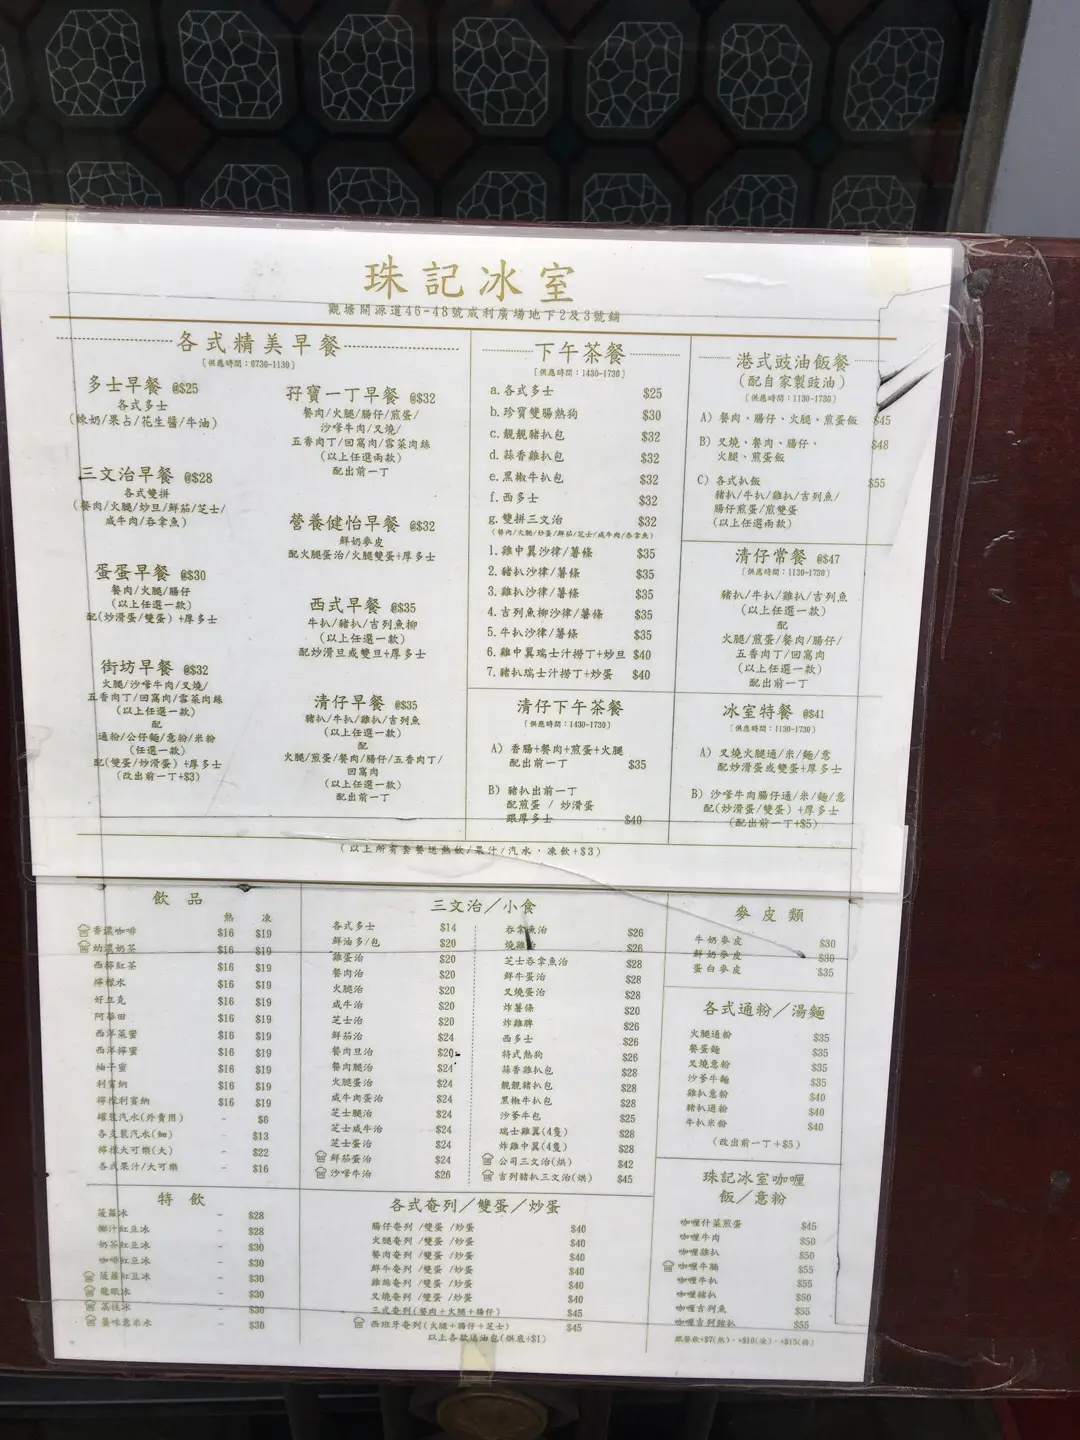 珠記冰室
觀塘開源道46-48號威利廣場地下2及3號鋪
各式精美早餐
〔供應時間：0730-1130〕
多士早餐 @$25
各式多士
(煉奶/果占/花生醬/牛油)
三文治早餐 @$28
各式雙拼
(餐肉/火腿/炒旦/鮮茄/芝士/
咸牛肉/吞拿魚)
蛋蛋早餐 @$30
餐肉/火腿/腸仔
(以上任選一款)
配(炒滑蛋/雙蛋)+厚多士
街坊早餐 @$32
火腿/沙嗲牛肉/叉燒/
五香肉丁/回窩肉/雪菜肉絲
(以上任選一款)
配
通粉/公仔麵/意粉/米粉
(任選一款)
配(雙蛋/炒滑蛋)+厚多士
(改出前一丁+$3)
孖寶一丁早餐 @$32
餐肉/火腿/腸仔/煎蛋/
沙嗲牛肉/叉燒/
五香肉丁/回窩肉/雪菜肉絲
(以上任選兩款)
配出前一丁
營養健怡早餐 @$32
鮮奶麥皮
配火腿蛋治/火腿雙蛋+厚多士
西式早餐 @$35
牛扒/豬扒/吉列魚柳
(以上任選一款)
配炒滑旦或雙旦+厚多士
清仔早餐 @$35
豬扒/牛扒/雞扒/吉列魚
(以上任選一款)
配
火腿/煎蛋/餐肉/腸仔/五香肉丁/
回窩肉
(以上任選一款)
配出前一丁
下午茶餐
〔供應時間：1430-1730〕
a. 各式多士 $25
b. 珍寶雙腸熱狗 $30
c. 靚靚豬扒包 $32
d. 蒜香雞扒包 $32
e. 黑椒牛扒包 $32
f. 西多士 $32
g. 雙拼三文治 $32
(餐肉/火腿/炒蛋/鮮茄/芝士/咸牛肉/吞拿魚)
1. 雞中翼沙律/薯條 $35
2. 豬扒沙律/薯條 $35
3. 雞扒沙律/薯條 $35
4. 吉列魚柳沙律/薯條 $35
5. 牛扒沙律/薯條 $35
6. 雞中翼瑞士汁撈丁+炒旦 $40
7. 豬扒瑞士汁撈丁+炒蛋 $40
清仔下午茶餐
〔供應時間：1430-1730〕
A) 香腸+餐肉+煎蛋+火腿
配出前一丁 $35
B) 豬扒出前一丁
配煎蛋 / 炒滑蛋
跟厚多士 $40
港式豉油飯餐
(配自家製豉油)
〔供應時間：1130-1730〕
A) 餐肉、腸仔、火腿、煎蛋飯 $45
B) 叉燒、餐肉、腸仔、 $48
火腿、煎蛋飯
C) 各式扒飯 $55
豬扒/牛扒/雞扒/吉列魚/
腸仔煎蛋/煎雙蛋
(以上任選兩款)
清仔常餐 @$47
〔供應時間：1130-1730〕
豬扒/牛扒/雞扒/吉列魚
(以上任選一款)
配
火腿/煎蛋/餐肉/腸仔/
五香肉丁/回窩肉
(以上任選一款)
配出前一丁
冰室特餐 @$41
〔供應時間：1130-1730〕
A) 叉燒火腿通/米/麵/意
配炒滑蛋或雙蛋+厚多士
B) 沙嗲牛肉腸仔通/米/麵/意
配(炒滑蛋/雙蛋)+厚多士
(配出前一丁+$5)
(以上所有套餐送熱飲/果汁/汽水，凍飲+$3)
飲品
熱 凍
香濃咖啡 $16 $19
幼滑奶茶 $16 $19
西檸紅茶 $16 $19
檸檬水 $16 $19
好立克 $16 $19
阿華田 $16 $19
西洋菜蜜 $16 $19
西洋檸蜜 $16 $19
柚子蜜 $16 $19
利賓納 $16 $19
檸檬利賓納 $16 $19
罐裝汽水(外賣用) - $6
各支裝汽水(細) - $13
檸檬大可樂(大) - $22
各式果汁/大可樂 - $16
特飲
菠蘿冰 - $28
椰汁紅豆冰 - $28
奶茶紅豆冰 - $30
咖啡紅豆冰 - $30
菠蘿紅豆冰 - $30
龍眼冰 - $30
荔枝冰 - $30
薏米冰 - $30
三文治／小食
各式多士 $14
鮮油多/包 $20
雞蛋治 $20
餐肉治 $20
火腿治 $20
咸牛治 $20
芝士治 $20
鮮茄治 $24
餐肉旦治 $20
餐肉腿治 $24
火腿蛋治 $24
咸牛肉蛋治 $24
芝士腿治 $24
芝士咸牛治 $24
芝士蛋治 $24
鮮茄蛋治 $24
沙嗲牛治 $26
吞拿魚治 $26
燒雞治 $26
芝士吞拿魚治 $28
鮮牛蛋治 $28
叉燒蛋治 $28
炸薯條 $20
炸雞脾 $26
西多士 $26
特式熱狗 $26
蒜香雞扒包 $28
靚靚豬扒包 $28
黑椒牛扒包 $28
沙爹牛包 $25
瑞士雞翼(4隻) $28
炸雞中翼(4隻) $28
公司三文治(烘) $42
吉列豬扒三文治(烘) $45
各式奄列／雙蛋／炒蛋
腸仔奄列 /雙蛋 /炒蛋 $40
火腿奄列 /雙蛋 /炒蛋 $40
餐肉奄列 /雙蛋 /炒蛋 $40
鮮牛奄列 /雙蛋 /炒蛋 $40
雞絲奄列 /雙蛋 /炒蛋 $40
叉燒奄列 /雙蛋 /炒蛋 $40
三式奄列(餐肉+火腿+腸仔) $45
西班牙奄列(火腿+腸仔+芝士) $45
以上各款送油包(烘底+$1)
麥皮類
牛奶麥皮 $30
鮮奶麥皮 $30
蛋白麥皮 $35
各式通粉／湯麵
火腿通粉 $35
餐蛋麵 $35
叉燒意粉 $35
沙爹牛麵 $35
雞扒意粉 $40
豬扒通粉 $40
牛扒米粉 $40
(改出前一丁+$5)
珠記冰室咖喱
飯／意粉
咖喱什菜煎蛋 $45
咖喱牛肉 $50
咖喱雞扒 $50
咖喱牛腩 $55
咖喱牛扒 $55
咖喱豬扒 $50
咖喱吉列魚 $55
咖喱吉列豬扒 $55
跟餐飲+$7(熱)，+$10(凍)，+$15(特)